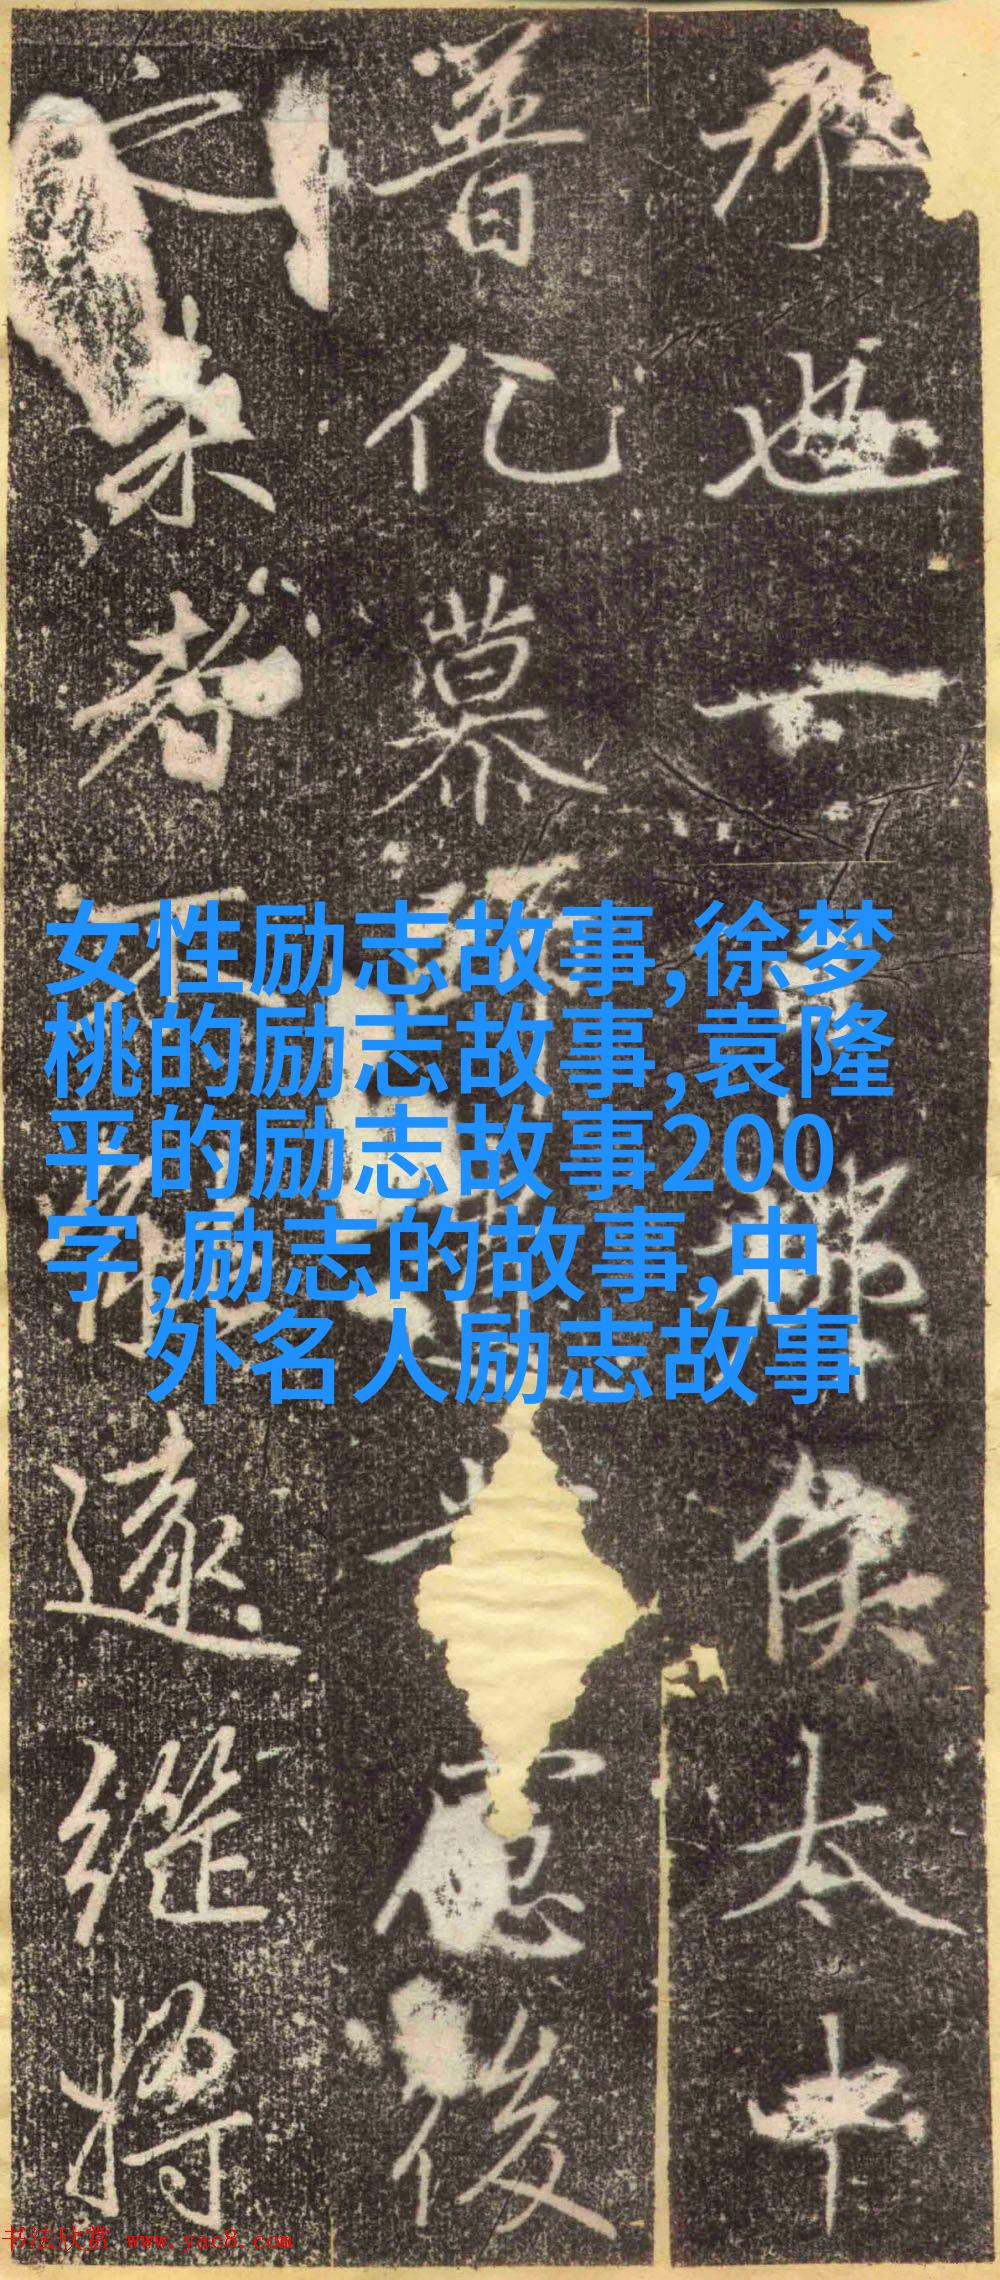 也一鄉侯太中
普化慕後
之来者遠繼將
女性励志故事,徐梦
桃的励志故事,袁隆
平的励志故事200
字,励志的故事,中
外名人励志故事
书法欣赏 www.yac8.com